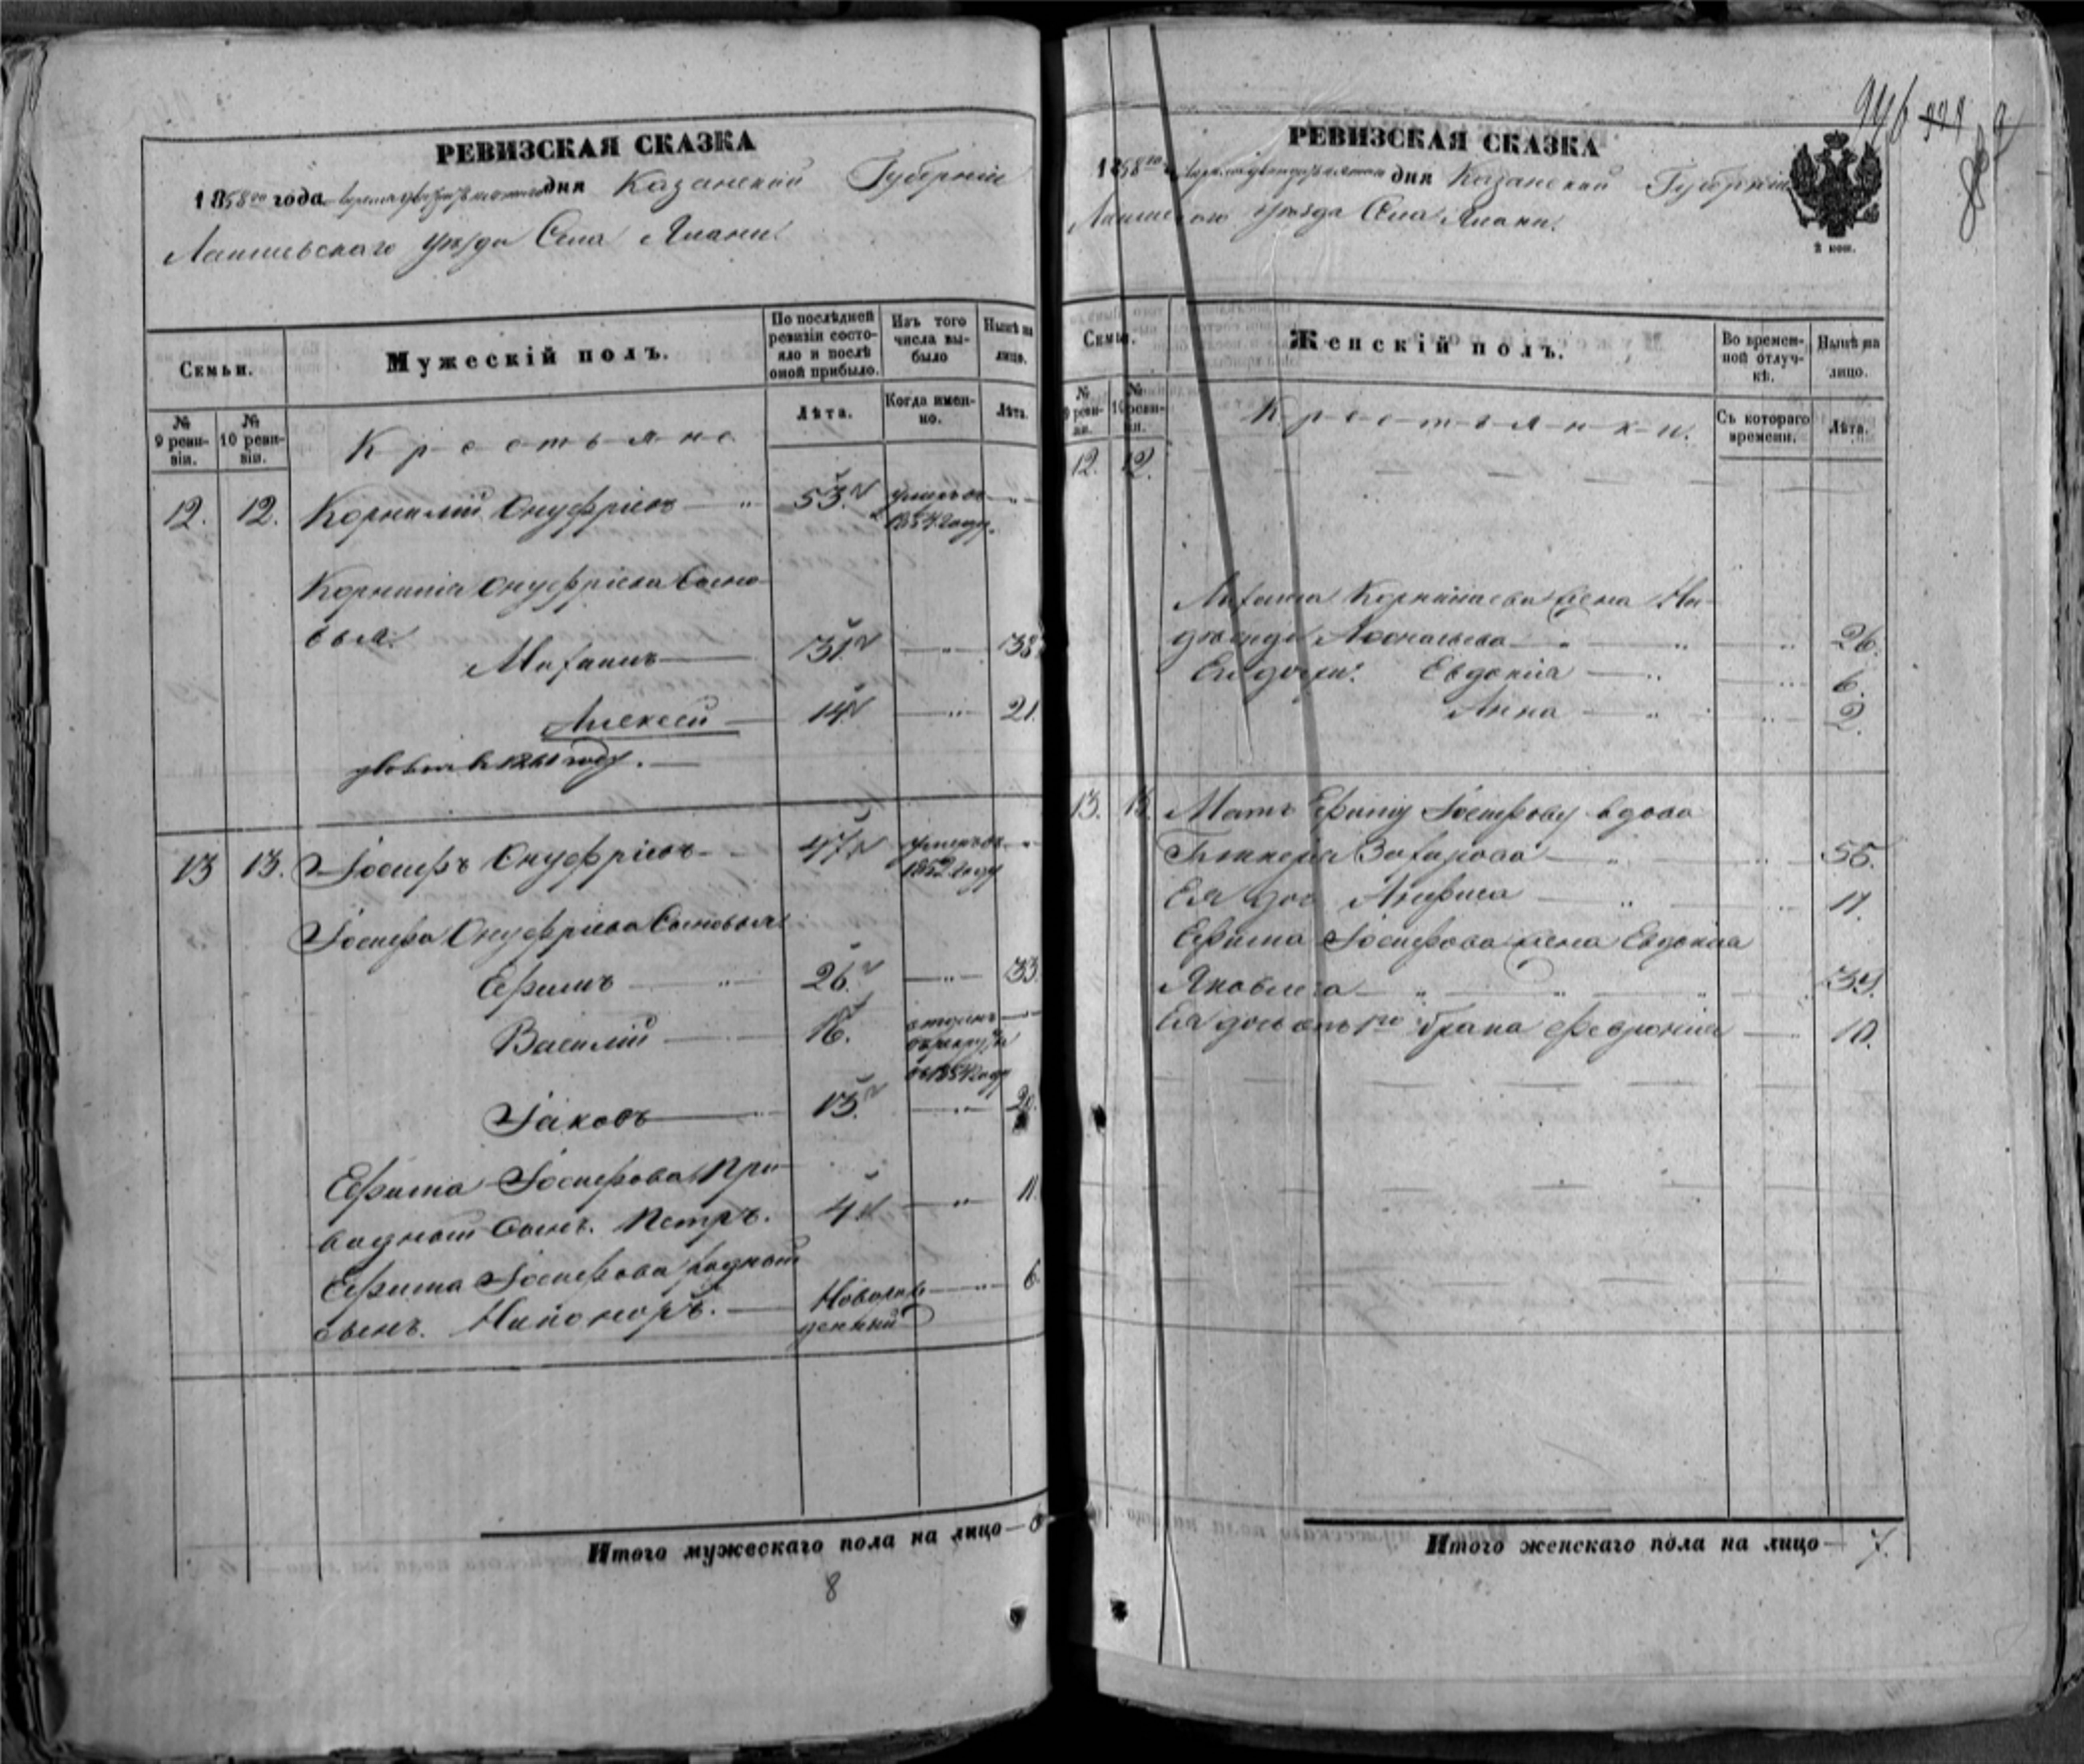 РЕВИЗСКАЯ СКАЗКА
1858го года дня Казанской Губерніи
Лаишевскаго уѣзда Села
Семьи.
Мужескій полъ.
По послѣдней ревизіи состо-
яло и послѣ
оной прибыло.
Изъ того
числа вы-
было
Нынѣ на
лицо.
№
9 реви-
зіи.
№
10 реви-
зіи.
Крестьяне
Лѣта.
Когда имен-
но.
Лѣта.
12. 12. Корнилій Онуфріевъ — 53. умеръ въ
1854 году.
Корнилія Онуфріева Сыно-
вья:
Михаилъ — 31. — 38.
Алексей — 14. — 21.
13 13. Іосифъ Онуфріевъ — 47. умеръ въ
1852 году
Іосифа Онуфріева Сыновья:
Ефимъ — 26. — 33.
Василій — 16. отданъ въ
рекруты
въ 1854 году
Іаковъ — 13. — 20.
Ефима Іосифова При-
водной Сынъ. Петръ. 4. — 11.
Ефима Іосифова родной
сынъ. Никоноръ. — Новорож-
денный — 6.
Итого мужескаго пола на лицо — 6
8
946
РЕВИЗСКАЯ СКАЗКА
1858го дня Казанской Губерніи
Лаишевскаго уѣзда Села
2 коп.
Семьи.
Женскій полъ.
Во времен-
ной отлуч-
кѣ.
Нынѣ на
лицо.
№
9 реви-
зіи.
№
10 реви-
зіи.
Крестьянки.
Съ котораго
времени.
Лѣта.
12. 12.
Михаила Корнилаева жена На-
дежда — 26.
Ея дочери: Евдокія — 6.
Анна — 2.
13. 13. Мать Ефиму Іосифову вдова
Захарова — 55.
Ея дочь Анфиса — 17.
Ефима Іосифова жена Евдокіа
Яковлева — 39.
Ея дочь отъ 1го брака Февронія — 10.
Итого женскаго пола на лицо — 7.